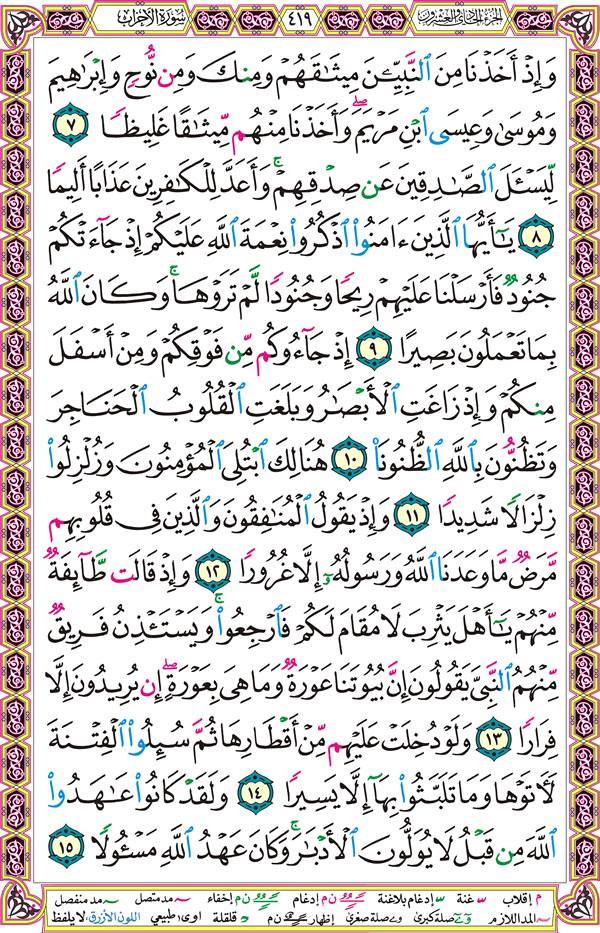 الجزء الحادي والعشرون
٤١٩
سورة الأحزاب
وَإِذْ أَخَذْنَا مِنَ ٱلنَّبِيِّـۧنَ مِيثَٰقَهُمْ وَمِنكَ وَمِن نُّوحٍ وَإِبْرَٰهِيمَ
وَمُوسَىٰ وَعِيسَى ٱبْنِ مَرْيَمَ ۖ وَأَخَذْنَا مِنْهُم مِّيثَٰقًا غَلِيظًا ٧
لِّيَسْـَٔلَ ٱلصَّٰدِقِينَ عَن صِدْقِهِمْ ۚ وَأَعَدَّ لِلْكَٰفِرِينَ عَذَابًا أَلِيمًا
٨ يَٰٓأَيُّهَا ٱلَّذِينَ ءَامَنُوا۟ ٱذْكُرُوا۟ نِعْمَةَ ٱللَّهِ عَلَيْكُمْ إِذْ جَآءَتْكُمْ
جُنُودٌ فَأَرْسَلْنَا عَلَيْهِمْ رِيحًا وَجُنُودًا لَّمْ تَرَوْهَا ۚ وَكَانَ ٱللَّهُ
بِمَا تَعْمَلُونَ بَصِيرًا ٩ إِذْ جَآءُوكُم مِّن فَوْقِكُمْ وَمِنْ أَسْفَلَ
مِنكُمْ وَإِذْ زَاغَتِ ٱلْأَبْصَٰرُ وَبَلَغَتِ ٱلْقُلُوبُ ٱلْحَنَاجِرَ
وَتَظُنُّونَ بِٱللَّهِ ٱلظُّنُونَا۠ ١٠ هُنَالِكَ ٱبْتُلِىَ ٱلْمُؤْمِنُونَ وَزُلْزِلُوا۟
زِلْزَالًا شَدِيدًا ١١ وَإِذْ يَقُولُ ٱلْمُنَٰفِقُونَ وَٱلَّذِينَ فِى قُلُوبِهِم
مَّرَضٌ مَّا وَعَدَنَا ٱللَّهُ وَرَسُولُهُۥٓ إِلَّا غُرُورًا ١٢ وَإِذْ قَالَت طَّآئِفَةٌ
مِّنْهُمْ يَٰٓأَهْلَ يَثْرِبَ لَا مُقَامَ لَكُمْ فَٱرْجِعُوا۟ ۚ وَيَسْتَـْٔذِنُ فَرِيقٌ
مِّنْهُمُ ٱلنَّبِىَّ يَقُولُونَ إِنَّ بُيُوتَنَا عَوْرَةٌ وَمَا هِىَ بِعَوْرَةٍ ۖ إِن يُرِيدُونَ إِلَّا
فِرَارًا ١٣ وَلَوْ دُخِلَتْ عَلَيْهِم مِّنْ أَقْطَارِهَا ثُمَّ سُئِلُوا۟ ٱلْفِتْنَةَ
لَـَٔاتَوْهَا وَمَا تَلَبَّثُوا۟ بِهَآ إِلَّا يَسِيرًا ١٤ وَلَقَدْ كَانُوا۟ عَٰهَدُوا۟
ٱللَّهَ مِن قَبْلُ لَا يُوَلُّونَ ٱلْأَدْبَٰرَ ۚ وَكَانَ عَهْدُ ٱللَّهِ مَسْـُٔولًا ١٥
م إقلاب غنة إدغام بلاغنة ن م إدغام ن م إخفاء مد متصل مد منفصل
المد اللازم صلة كبرى صلة صغرى إظهار ن م قلقلة اوى طبيعي اللون الأزرق: لا يلفظ